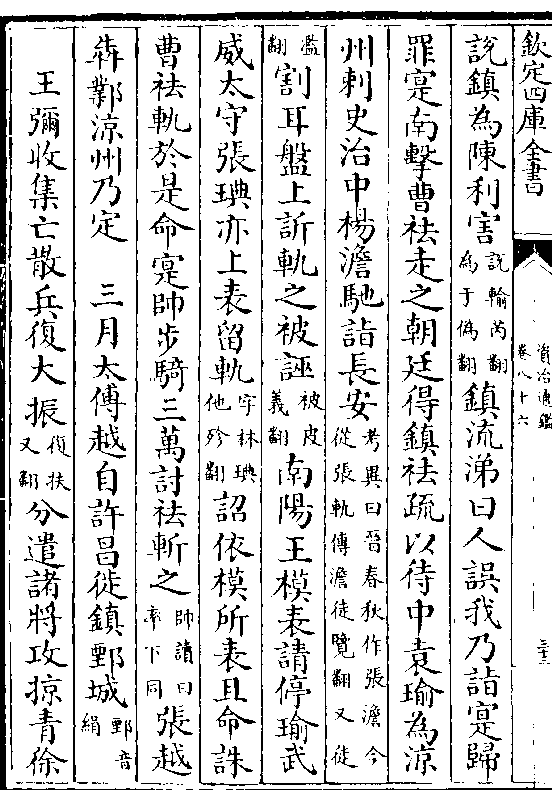 欽定四庫全書
資治通鑑
卷八十六
三十三
說鎮為陳利害說輸芮翻為于偽翻鎮流涕曰人誤我乃詣寔歸
罪寔南擊曹袪走之朝廷得鎮袪疏以待中袁瑜為涼
州刺史治中楊澹馳詣長安考異曰晉春秋作張澹今從張軌傳澹徒覽翻又徒
濫翻割耳盤上訴軌之被誣被皮義翻南陽王模表請停瑜武
威太守張琠亦上表留軌字林琠他殄翻詔依模所表且命誅
曹袪軌於是命寔帥步騎三萬討袪斬之帥讀曰率下同張越
犇鄴涼州乃定　三月太傅越自許昌徙鎮鄄城鄄音絹
王彌收集亡散兵復大振復扶又翻分遣諸將攻掠青徐